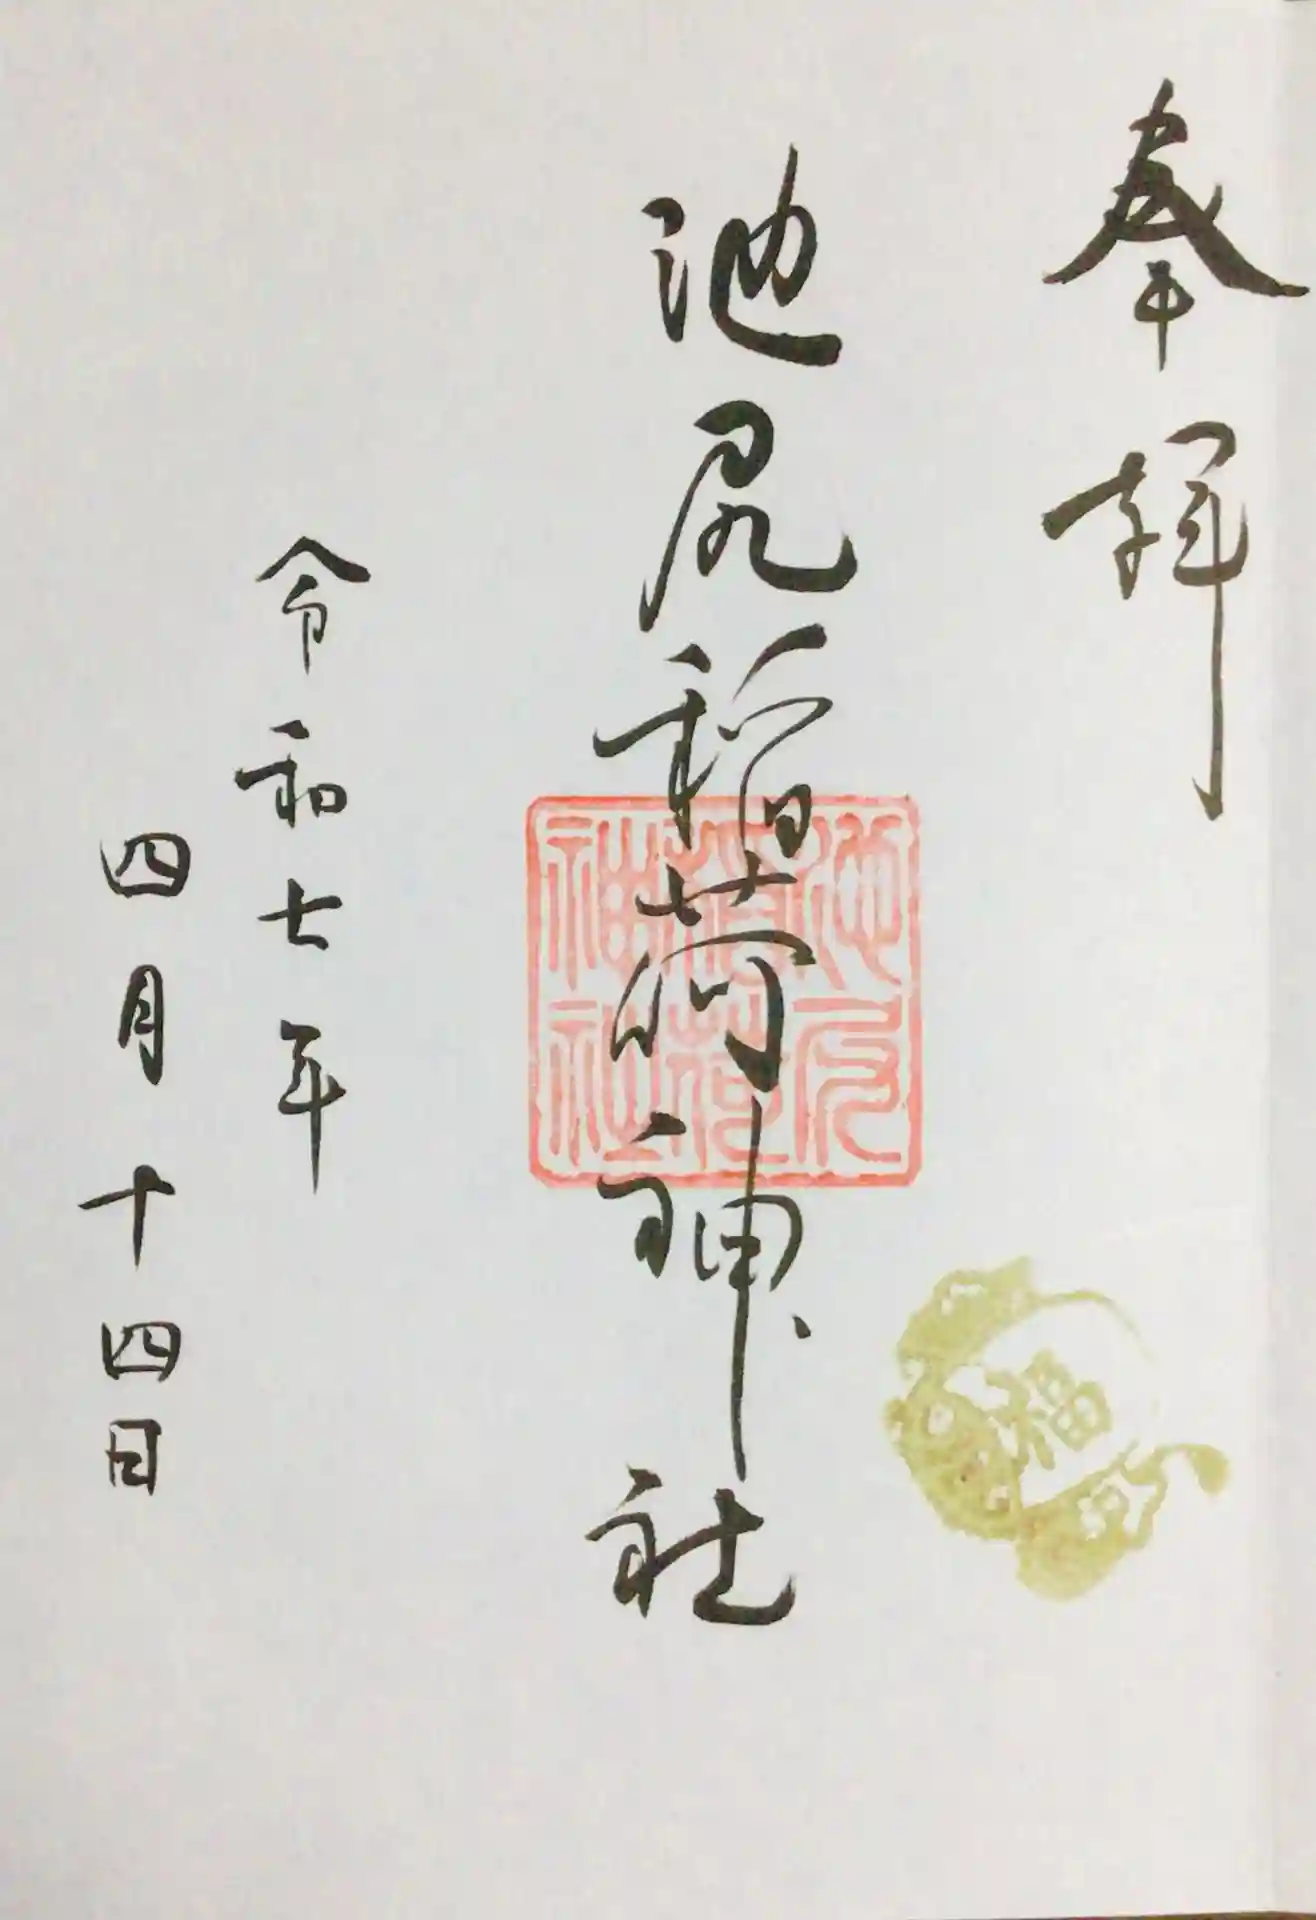 奉拝
池尻稲荷神社
池尻稲荷神社
福
令和七年
四月十四日